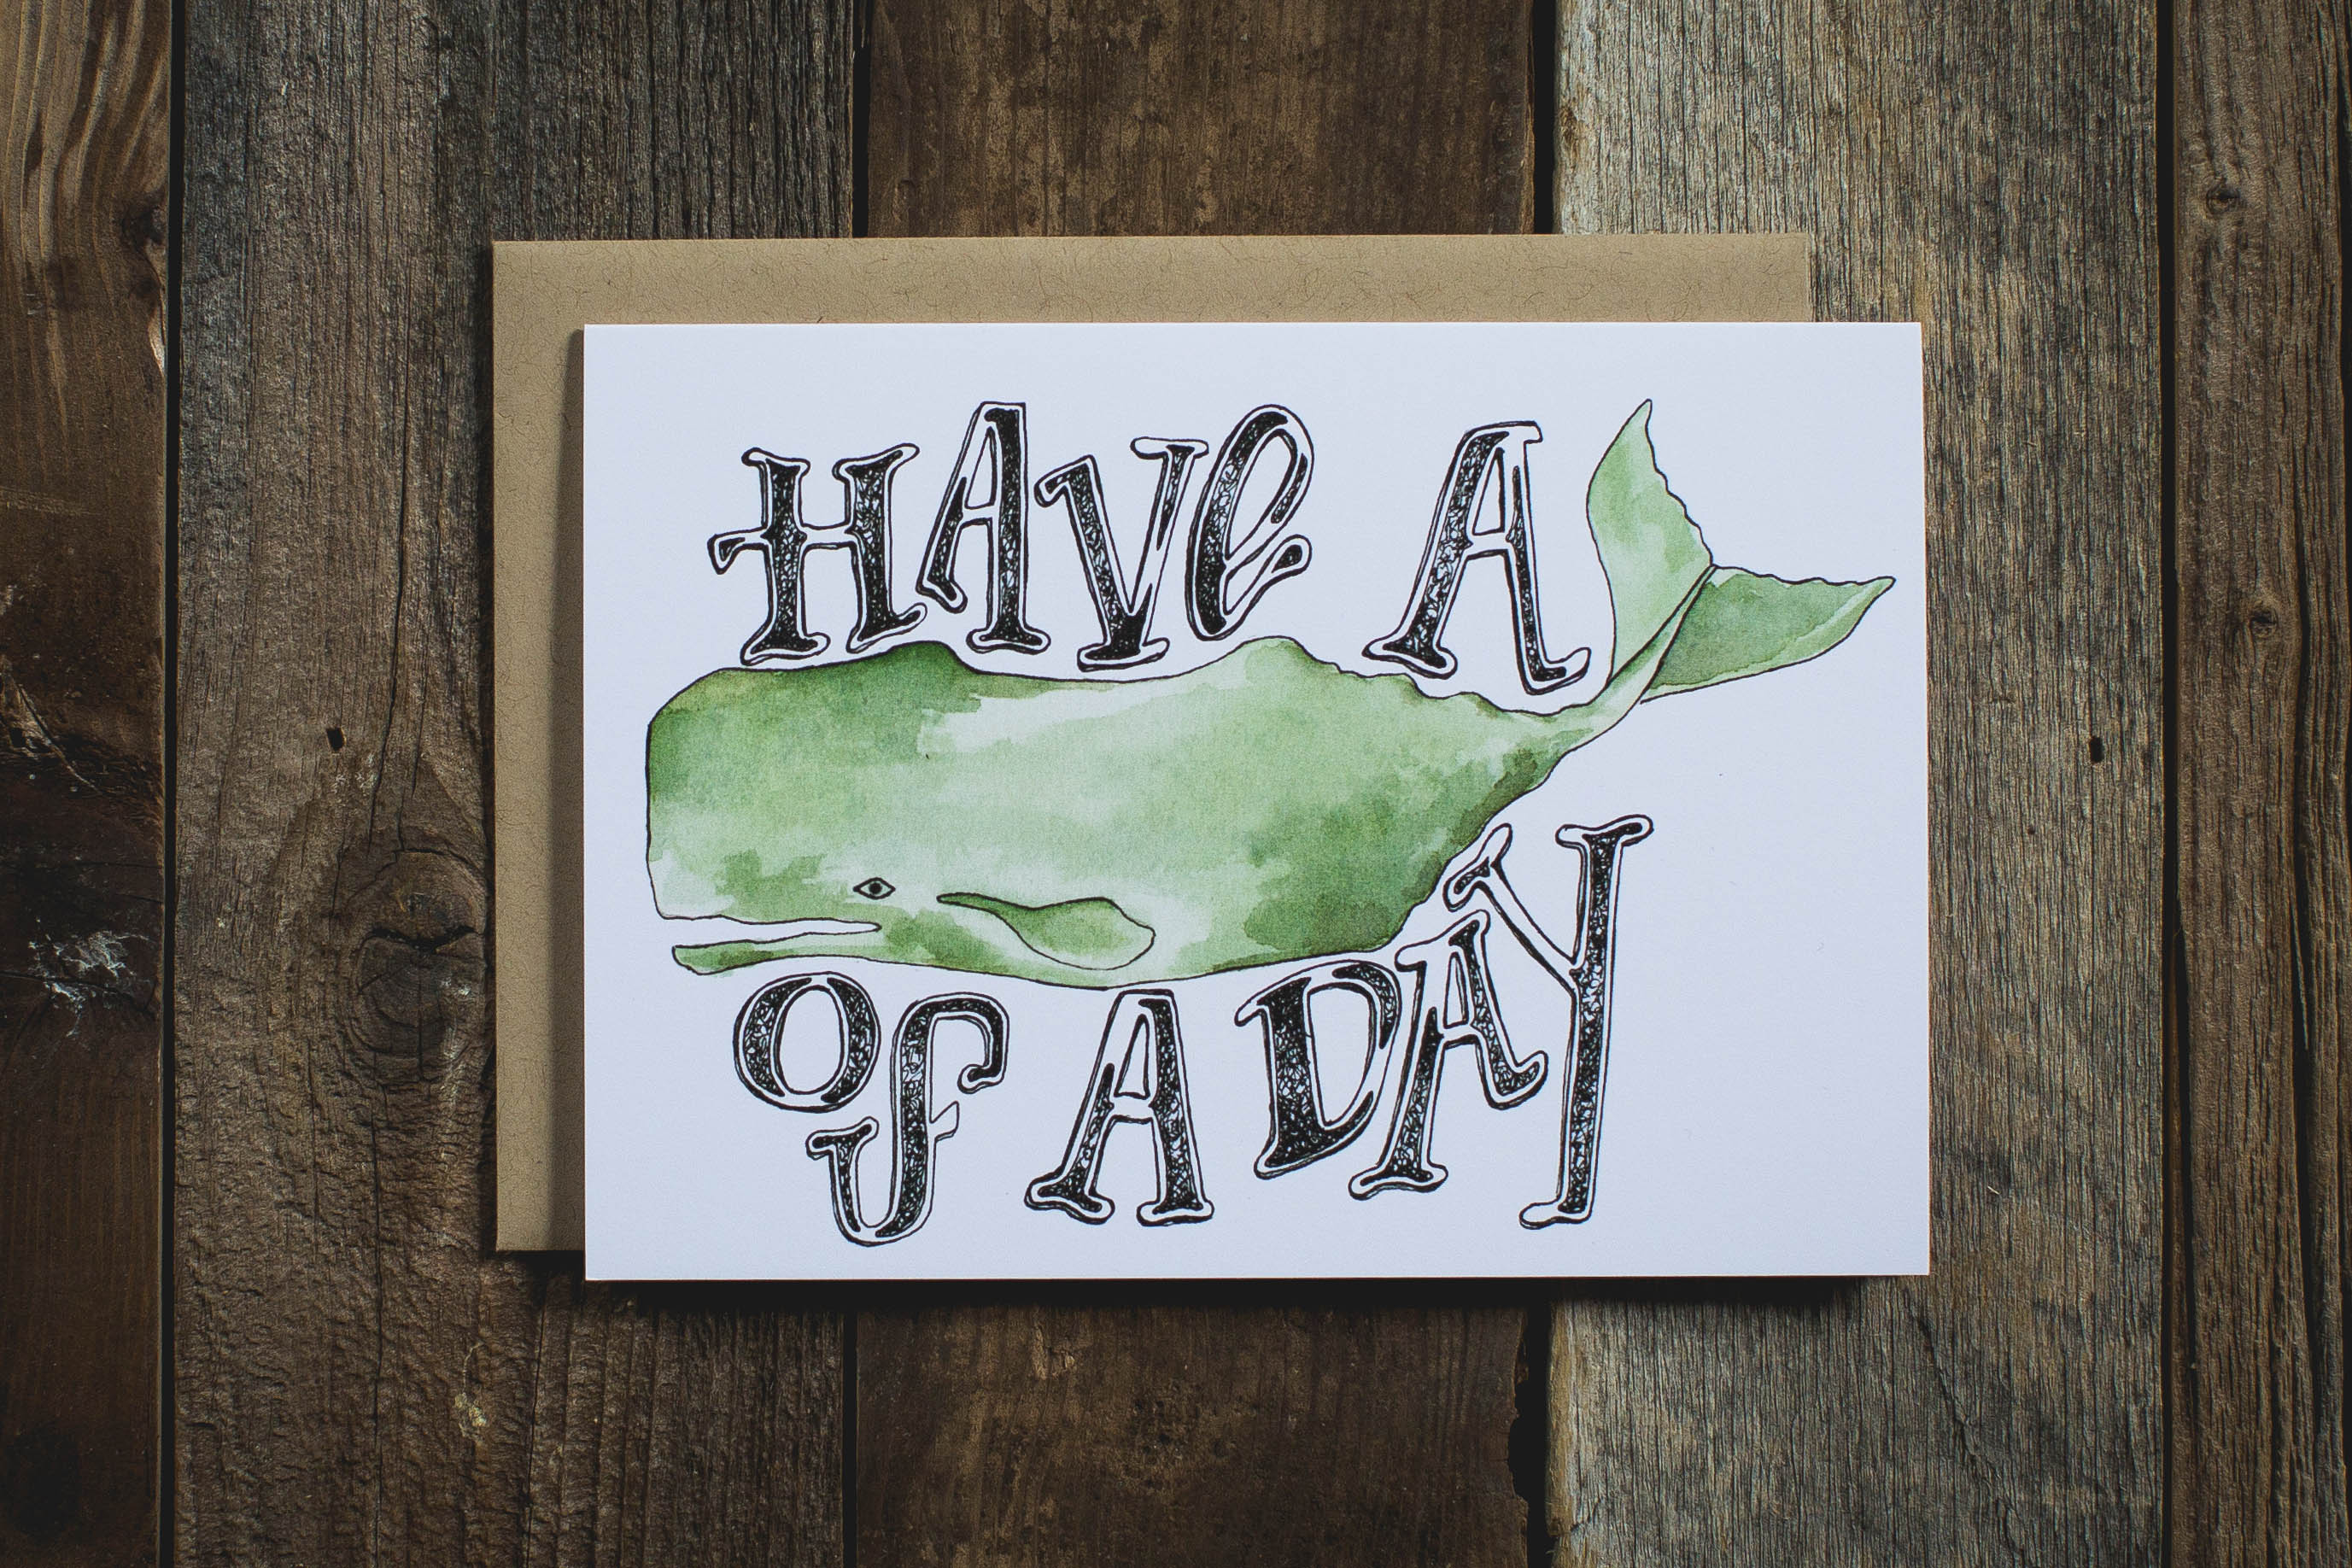 HAVe A
OF A DAY